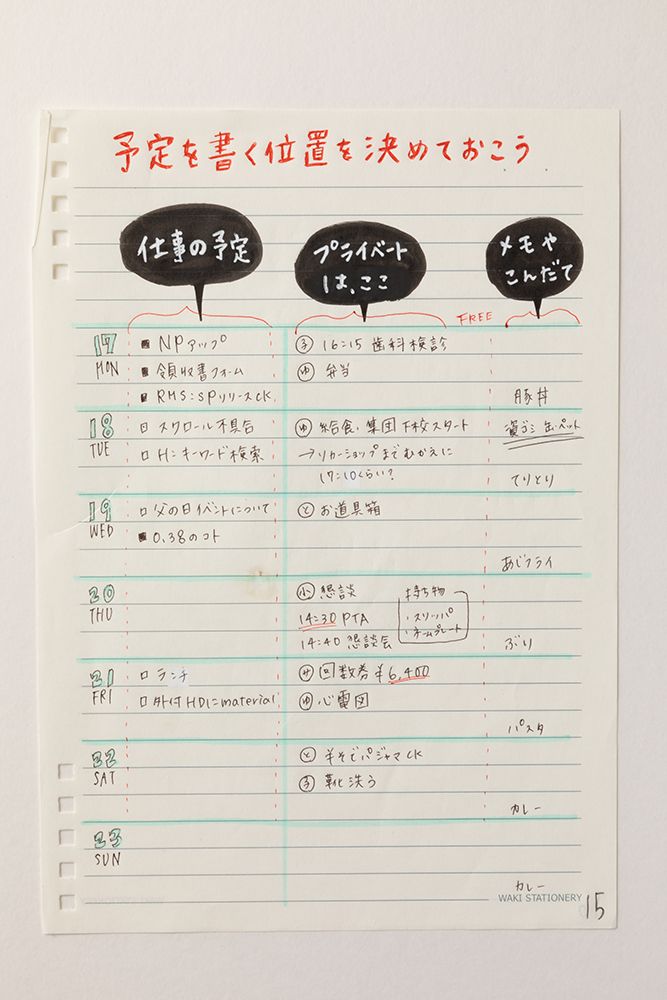 予定を書く位置を決めておこう
仕事の予定
プライベート
は、ここ
メモや
こんだて
FREE
17
MON
■ NPアップ
■ 領収書フォーム
■ RMS:SPリリースCK
㋙ 16:15 歯科検診
ゆ 弁当
豚丼
18
TUE
□ スクロール不具合
□ H:キーワード検索
ゆ 給食、集団下校スタート
→リカーショップまでむかえに
17:10くらい?
資ゴミ 缶・ペット
てりとり
19
WED
□ 父の日イベントについて
■ 0.38のコト
と お道具箱
あじフライ
20
THU
小 懇談
14:30 PTA
14:40 懇談会
持ち物
・スリッパ
・ネームプレート
ぶり
21
FRI
□ ランチ
□ 外付HDにmaterial
サ 回数券 ¥6,400
ゆ 心電図
パスタ
22
SAT
と 半そでパジャマCK
洗う
カレー
23
SUN
カレー
WAKI STATIONERY
15